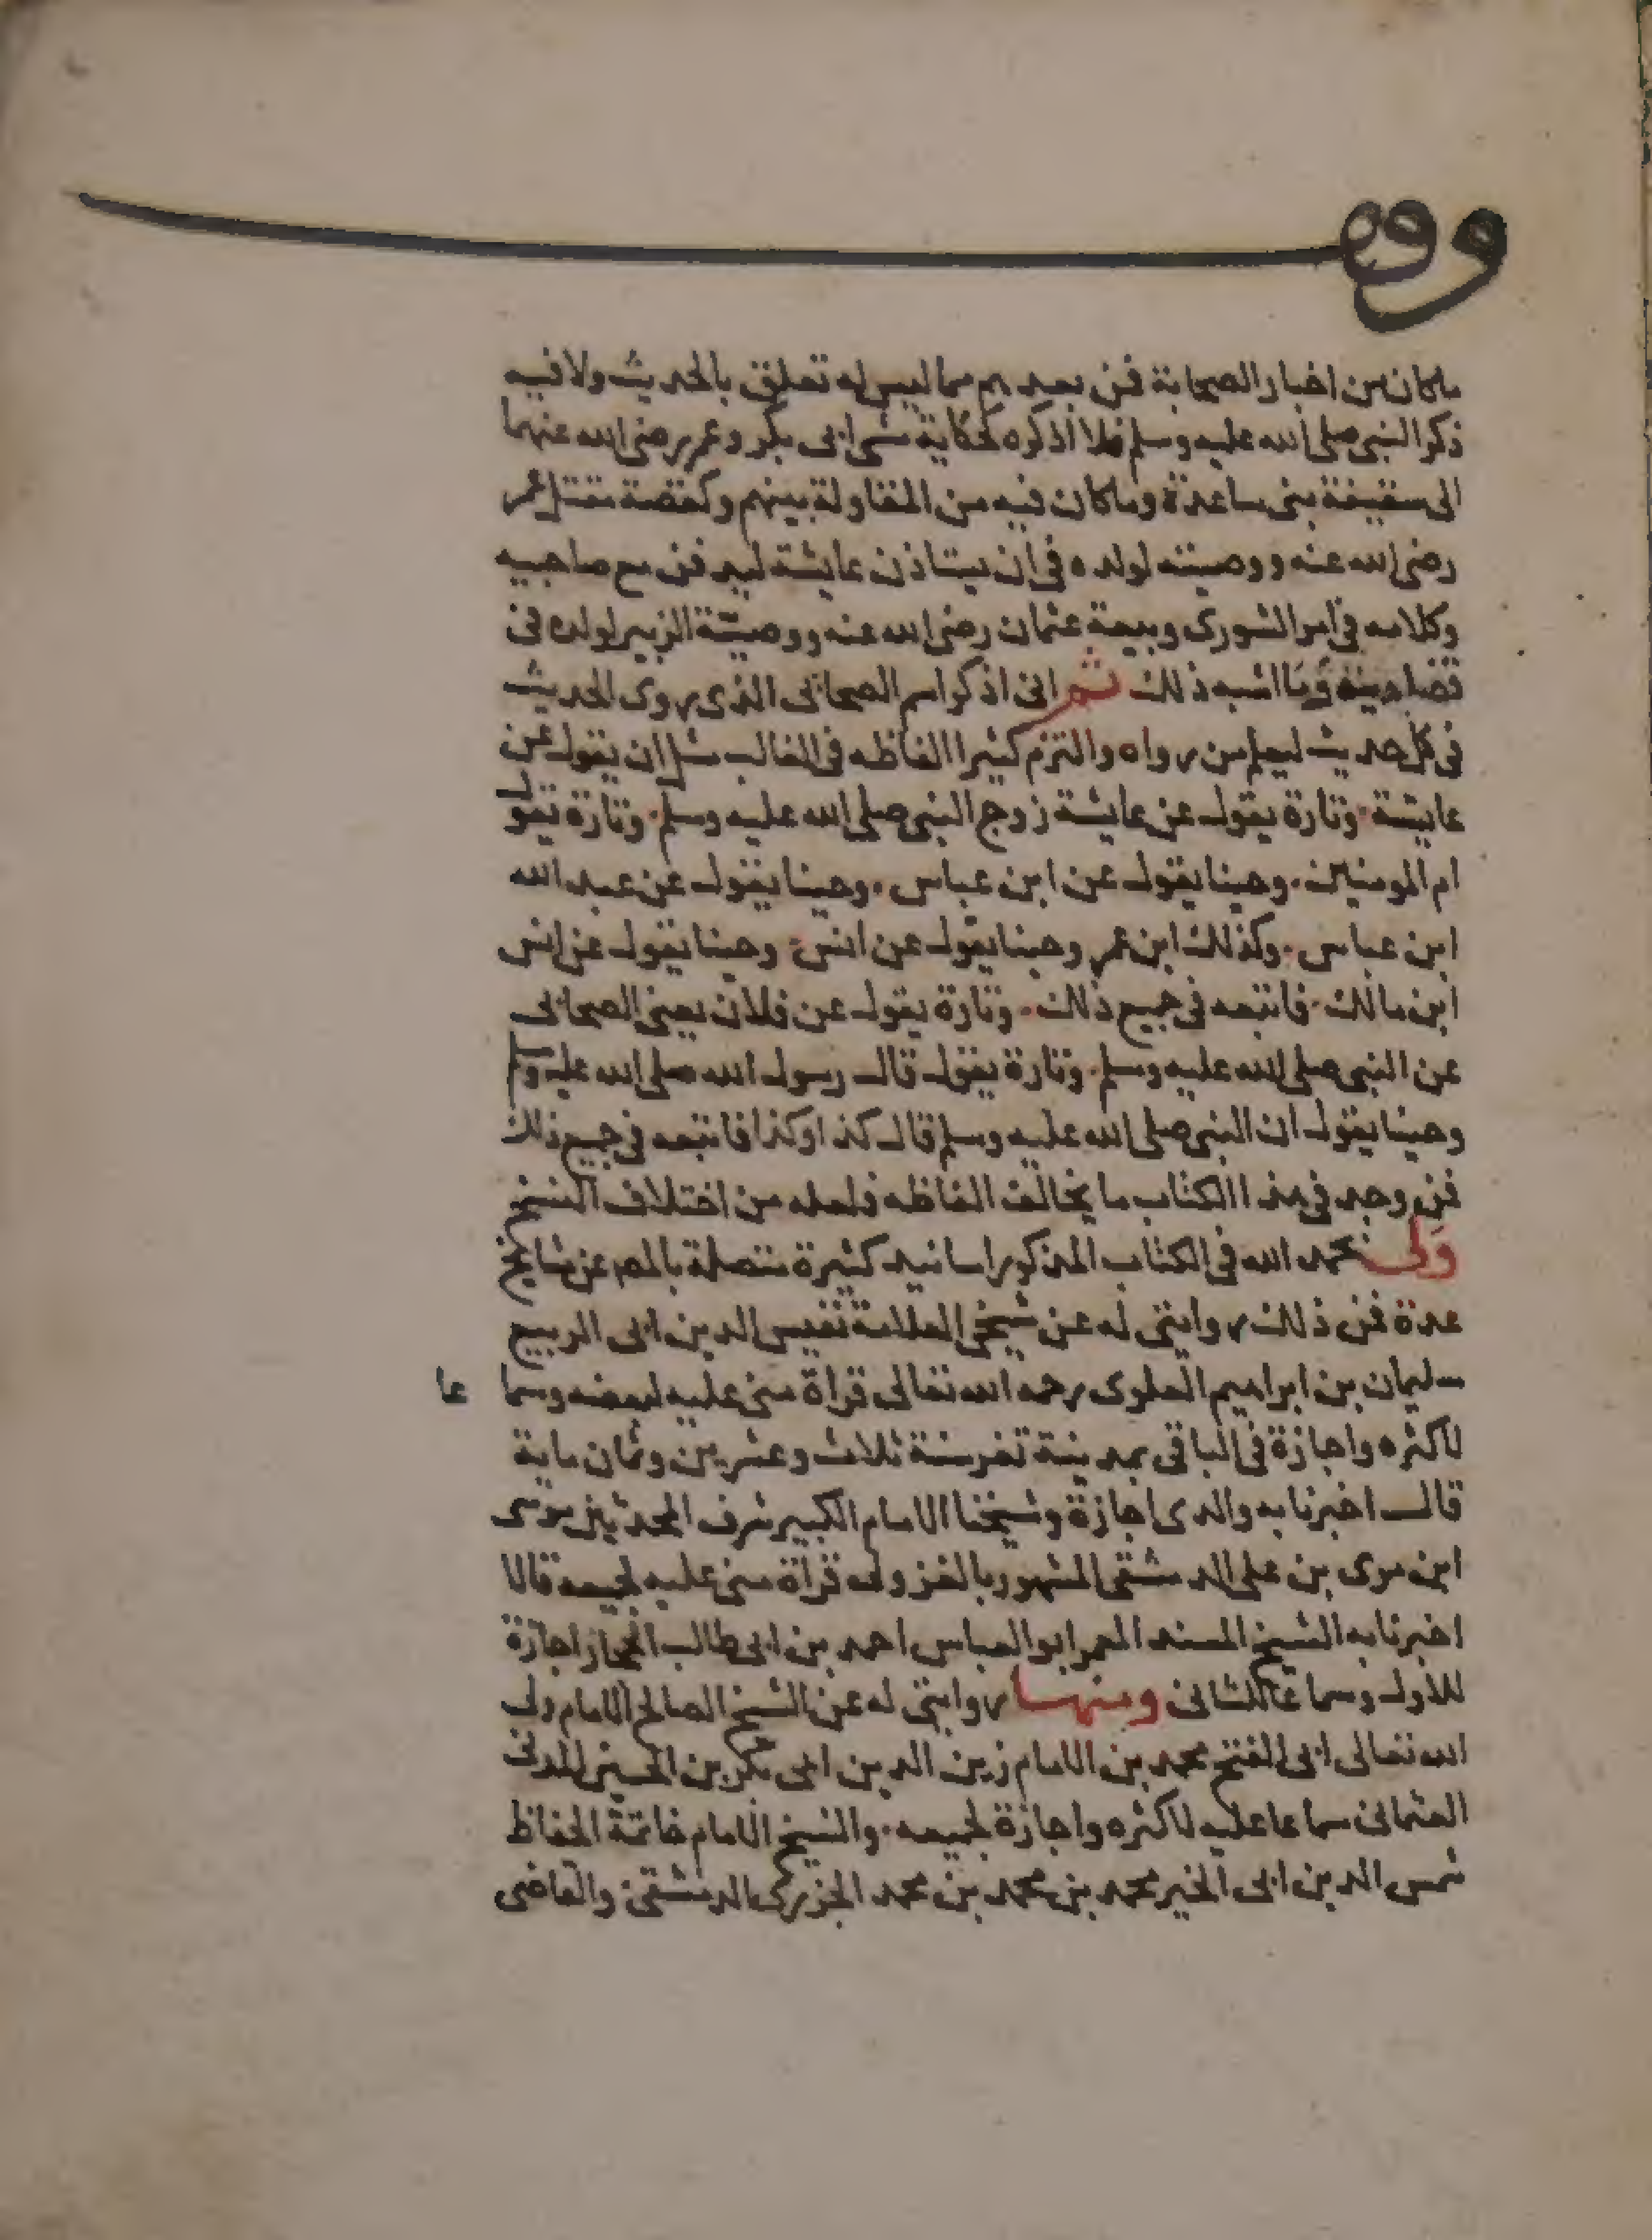 وقف
ما كان من اخبار الصحابة فمن بعدهم مما ليس له تعلق بالحديث ولا فيه
ذكر النبى صلى الله عليه وسلم فلا اذكره كحكاية مشى ابى بكر وعمر رضى الله عنهما
الى سقيفة بنى ساعدة وما كان فيه من المقاولة بينهم وكقصة مقتل عمر
رضى الله عنه ووصيته لولده فى ان يستاذن عايشة ليدفن مع صاحبيه
وكلامه فى امر الشورى وبيعة عثمان رضى الله عنه ووصية الزبير لولده فى
قضا دينه وما اشبه ذلك ثم انى اذكر اسم الصحابى الذى روى الحديث
فى كل حديث ليعلم من رواه والتزم كثيرا الفاظه فى الغالب مثل ان يقول عن
عايشة وتارة يقول عن عايشة زوج النبى صلى الله عليه وسلم وتارة يقول
ام المومنين وحينا يقول عن ابن عباس وحينا يقول عن عبد الله
ابن عباس وكذلك ابن عمر وحينا يقول عن انس وحينا يقول عن انس
ابن مالك فاتبعه فى جميع ذلك وتارة يقول عن فلان يعنى الصحابى
عن النبى صلى الله عليه وسلم وتارة يقول قال رسول الله صلى الله عليه وسلم
وحينا يقول ان النبى صلى الله عليه وسلم قال كذا وكذا فاتبعه فى جميع ذلك
فمن وجد فى هذا الكتاب ما يخالف الفاظه فلعله من اختلاف النسخ
ولى بحمد الله فى الكتاب المذكور اسانيد كثيرة متصلة بالمص عن مشايخ
عدة فمن ذلك روايتى له عن شيخى العلامة نفيس الدين ابى الربيع
سليمان بن ابراهيم العلوى رحمه الله تعالى قراة منى عليه لبعضه وسما عا
لاكثره واجازة فى الباقى بمدينة تعز سنة ثلاث وعشرين وثمان ماية
قال اخبرنا به والدى اجازة وشيخنا الامام الكبير شرف المحدثين موسى
ابن موسى بن على الدمشقى المشهور بالغزولى قراة منى عليه لجميعه قالا
اخبرنا به الشيخ المسند المعمر ابو العباس احمد بن ابى طالب الحجار اجازة
للاول وسماعا للثانى ومنها روايتى له عن الشيخ الصالح الامام ولى
الله تعالى ابى الفتح محمد بن الامام زين الدين ابى بكر بن الحسين المدنى
العثمانى سماعا عليه لاكثره واجازة لجميعه والشيخ الامام خاتمة الحفاظ
شمس الدين ابى الخير محمد بن محمد بن محمد الجزرى الدمشقى والقاضى